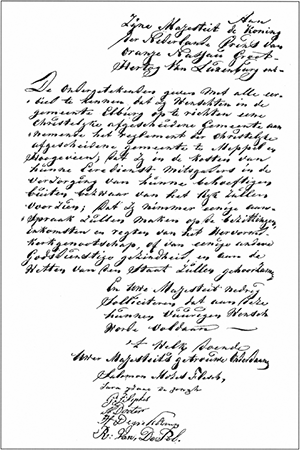 Aan
Zijne Majesteit de Koning
der Nederlanden Prins van
Oranje Nassau Groot-
Hertog Van Luxenburg enz.
De Ondergetekenden geven met alle eer-
bied te kennen, dat zij Wenschten in de
gemeente Elburg op te richten eene
Christelijke afgescheidene Gemeente aan
nemende het reglement der Christelijke
afgescheidene gemeente te Meppel en
Hoogeveen; dat zij in de kosten van
hunne Eeredienst mitsgaders in de
Verzorging van hunne behoeftigen
buiten bezwaar van het Rijk zullen
voorzien; dat zij nimmer eenige aan-
spraak zullen maken op de bezittingen,
inkomsten en regten van het Hervormd
Kerkgenootschap, of van eenige andere
Godsdienstige gezindheid en aan de
Wetten van den Staat zullen gehoorzamen
En Uwe Majesteit nedrig
Solliciteren dat aan deze
hunnen vuurigen Wensch
Worde voldaan
't Welk Doende
Uwer Majesteits getrouwe Onderdanen
Salomon Mozes Flesch,